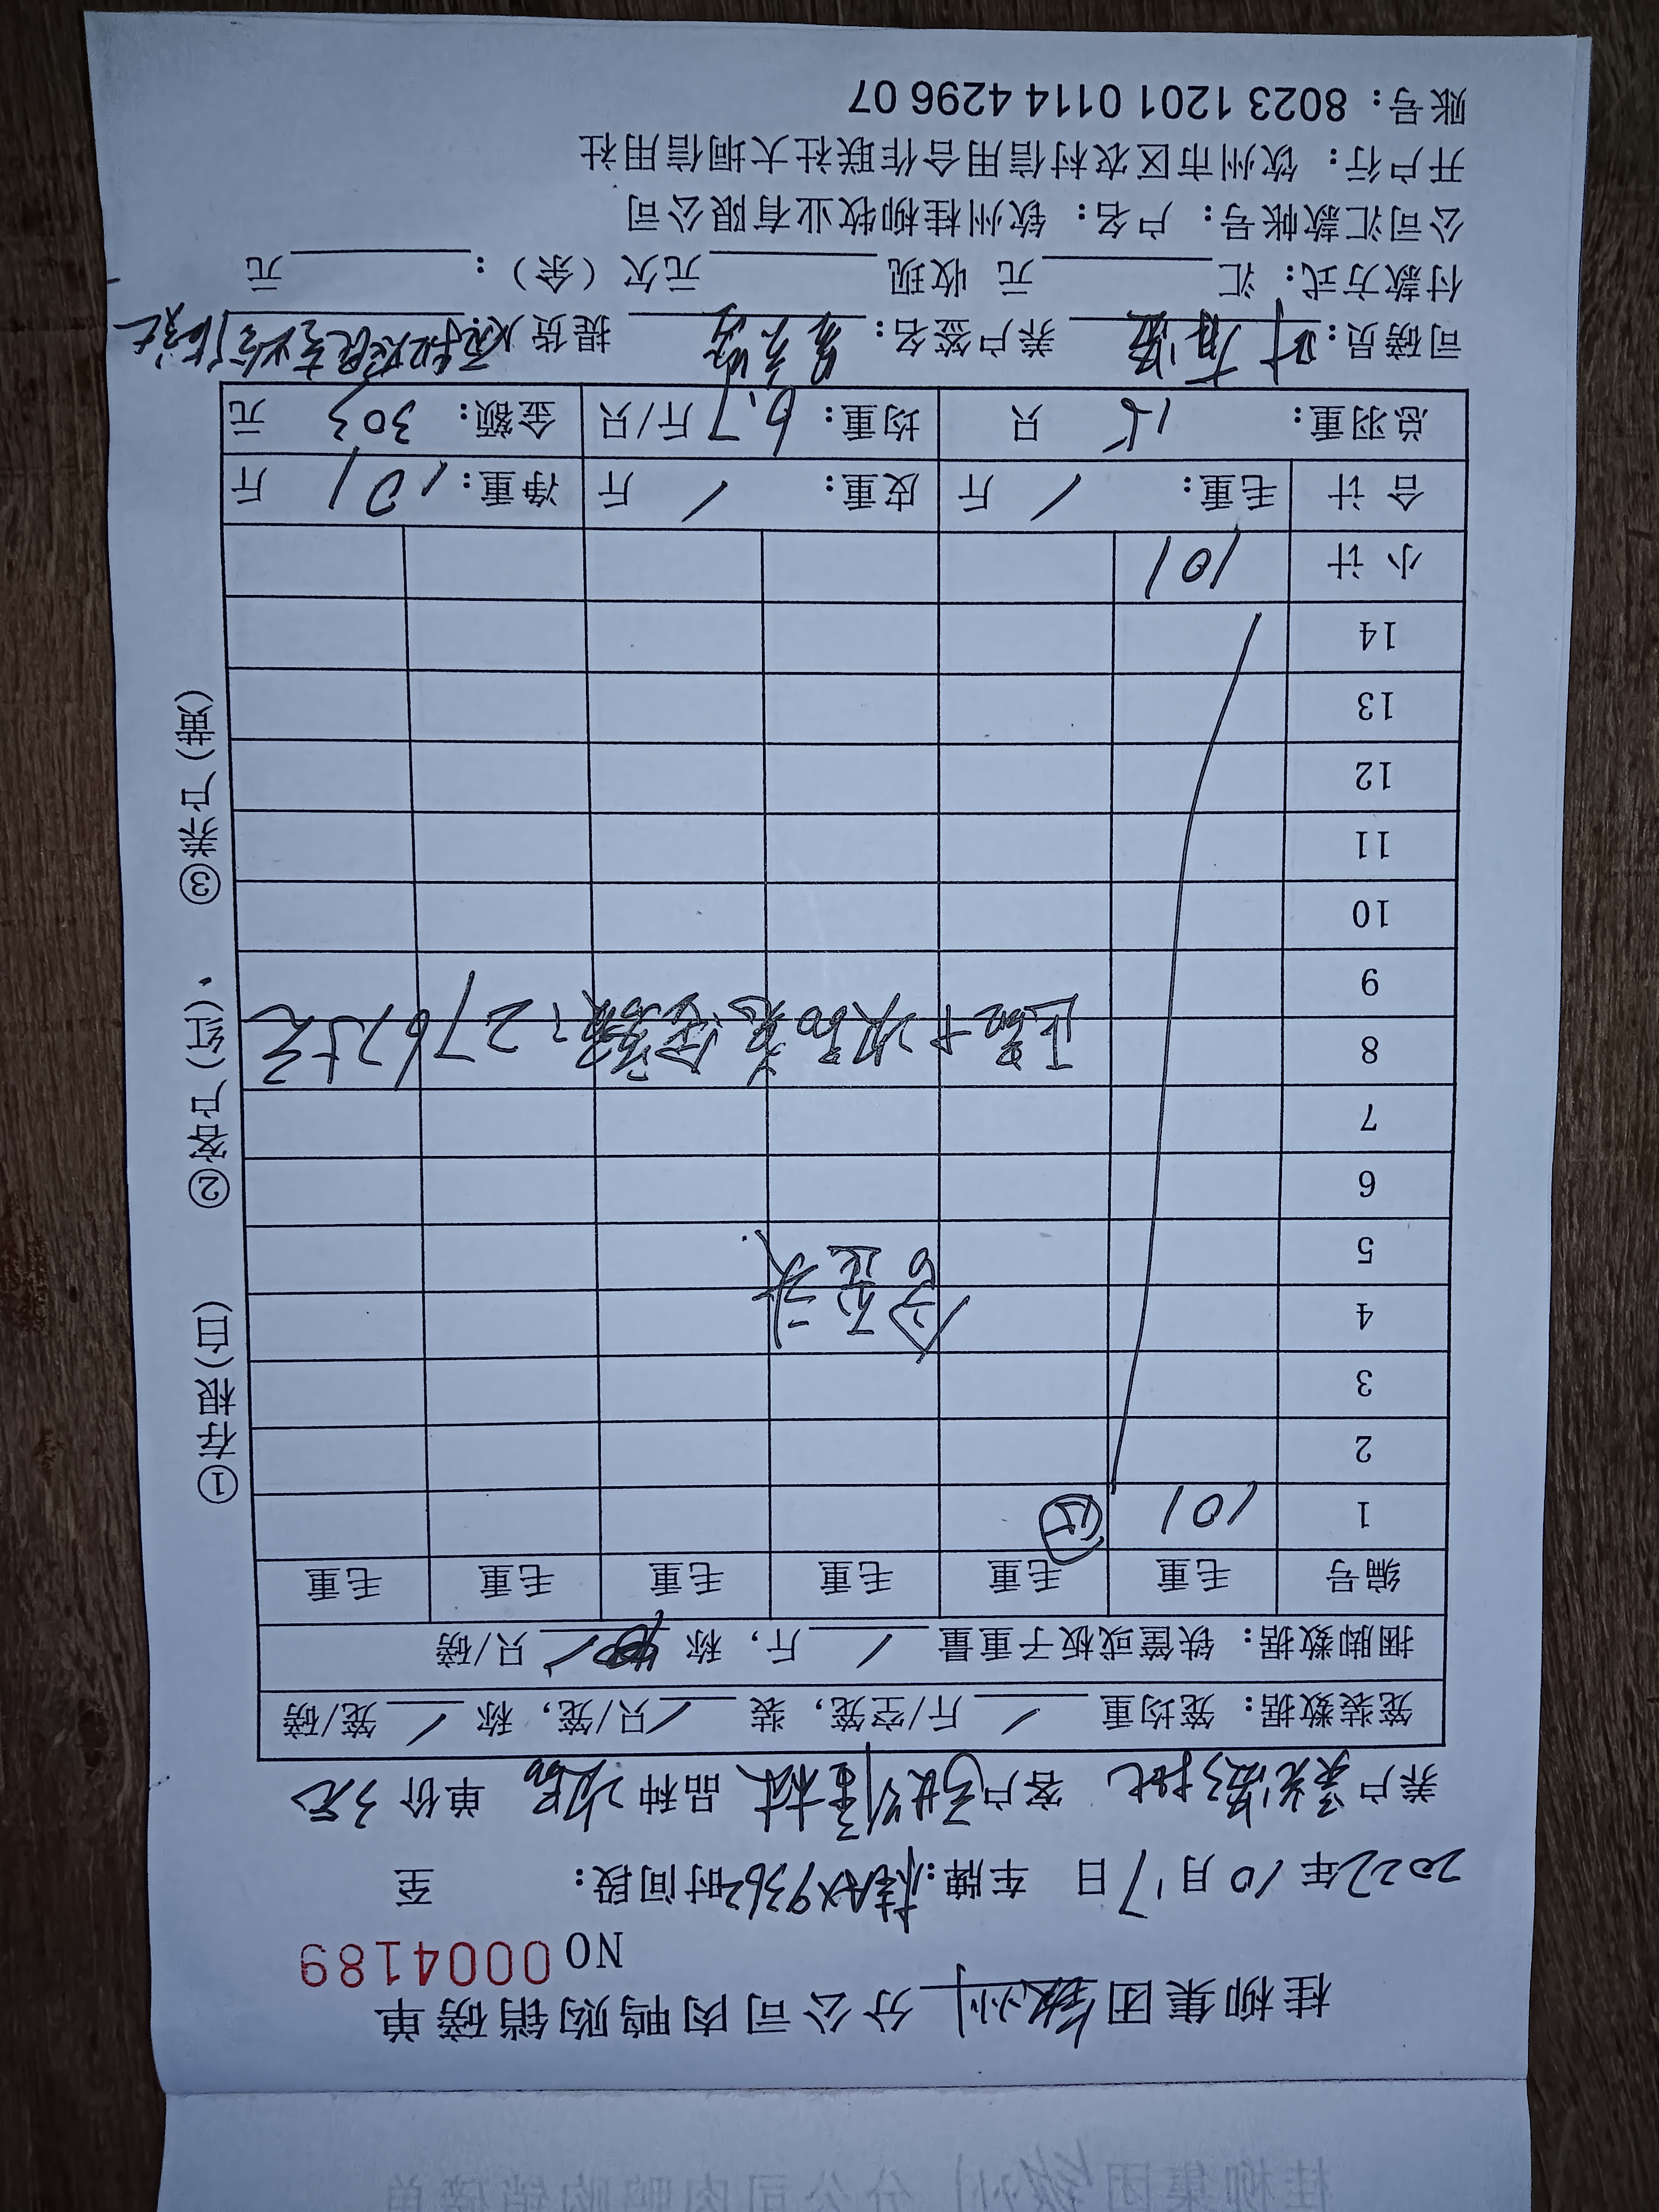 桂柳集团钦州分公司肉鸭购销磅单
NO 0004189
2022年10月17日 车牌:桂AX9362时间段: 至
养户 客户 品种次品 单价3元
笼装数据: 笼均重/斤/空笼, 装/只/笼, 称/笼/磅
捆脚数据: 铁筐或板子重量/斤, 称/只/磅
编号 毛重 毛重 毛重 毛重 毛重 毛重
1 101 15
2
3
4
5
6
7
8 正品+次品总金额: 27675元
9
10
11
12
13
14
小计 101
合计 毛重: / 斤 皮重: / 斤 净重: 101 斤
总羽重: 15 只 均重: 6.7 斤/只 金额: 303 元
司磅员: 养户签名: 提货人:
付款方式: 汇 元 收现 元欠(余): 元
公司汇款帐号: 户名: 钦州桂柳牧业有限公司
开户行: 钦州市区农村信用合作联社大垌信用社
账号: 8023 1201 0114 4296 07
①存根(白) ②客户(红) ③养户(黄)
桂柳集团钦州分公司肉鸭购销磅单